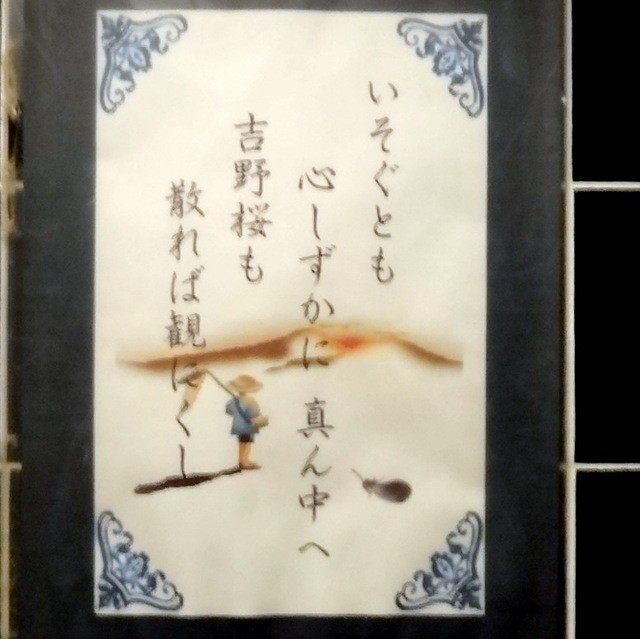 いそぐとも
心しずかに 真ん中へ
吉野桜も
散れば観にくし